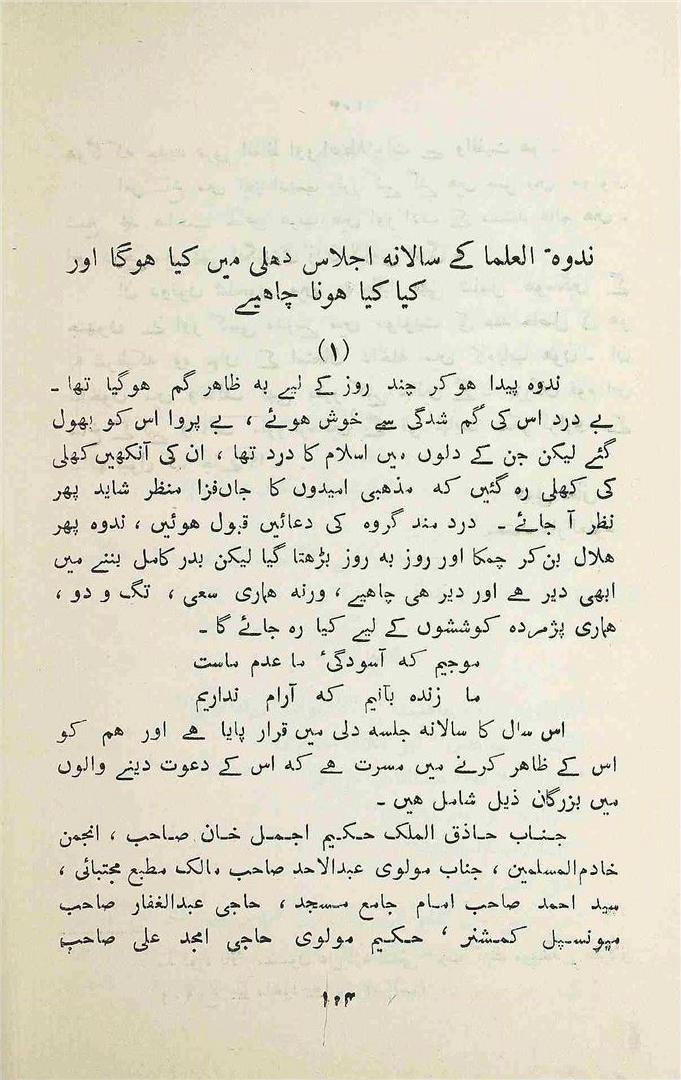 ندوۃ العلما کے سالانہ اجلاس دھلی میں کیا ھوگا اور
کیا کیا ھونا چاھیے
(۱)
ندوہ پیدا ھو کر چند روز کے لیے بہ ظاھر گم ھوگیا تھا ۔
بے درد اس کی گم شدگی سے خوش ھوئے ، بے پروا اس کو بھول
گئے لیکن جن کے دلوں میں اسلام کا درد تھا ، ان کی آنکھیں کھلی
کی کھلی رہ گئیں کہ مذھبی امیدوں کا جاں فزا منظر شاید پھر
نظر آ جائے ۔ درد مند گروہ کی دعائیں قبول ھوئیں ، ندوہ پھر
ھلال بن کر چمکا اور روز بہ روز بڑھتا گیا لیکن بدر کامل بننے میں
ابھی دیر ھے اور دیر ھی چاھیے ، ورنہ ھماری سعی ، تگ و دو ،
ھماری پژمردہ کوششوں کے لیے کیا رہ جائے گا ۔
موجیم کہ آسودگیٔ ما عدم ماست
ما زندہ بآنیم کہ آرام نداریم
اس سال کا سالانہ جلسہ دلی میں قرار پایا ھے اور ھم کو
اس کے ظاھر کرنے میں مسرت ھے کہ اس کے دعوت دینے والوں
میں بزرگان ذیل شامل ھیں ۔
جناب حاذق الملک حکیم اجمل خان صاحب ، انجمن
خادم المسلمین ، جناب مولوی عبدالاحد صاحب مالک مطبع مجتبائی ،
سید احمد صاحب امام جامع مسجد ، حاجی عبدالغفار صاحب
میونسپل کمشنر ، حکیم مولوی حاجی امجد علی صاحب
۱۰۳